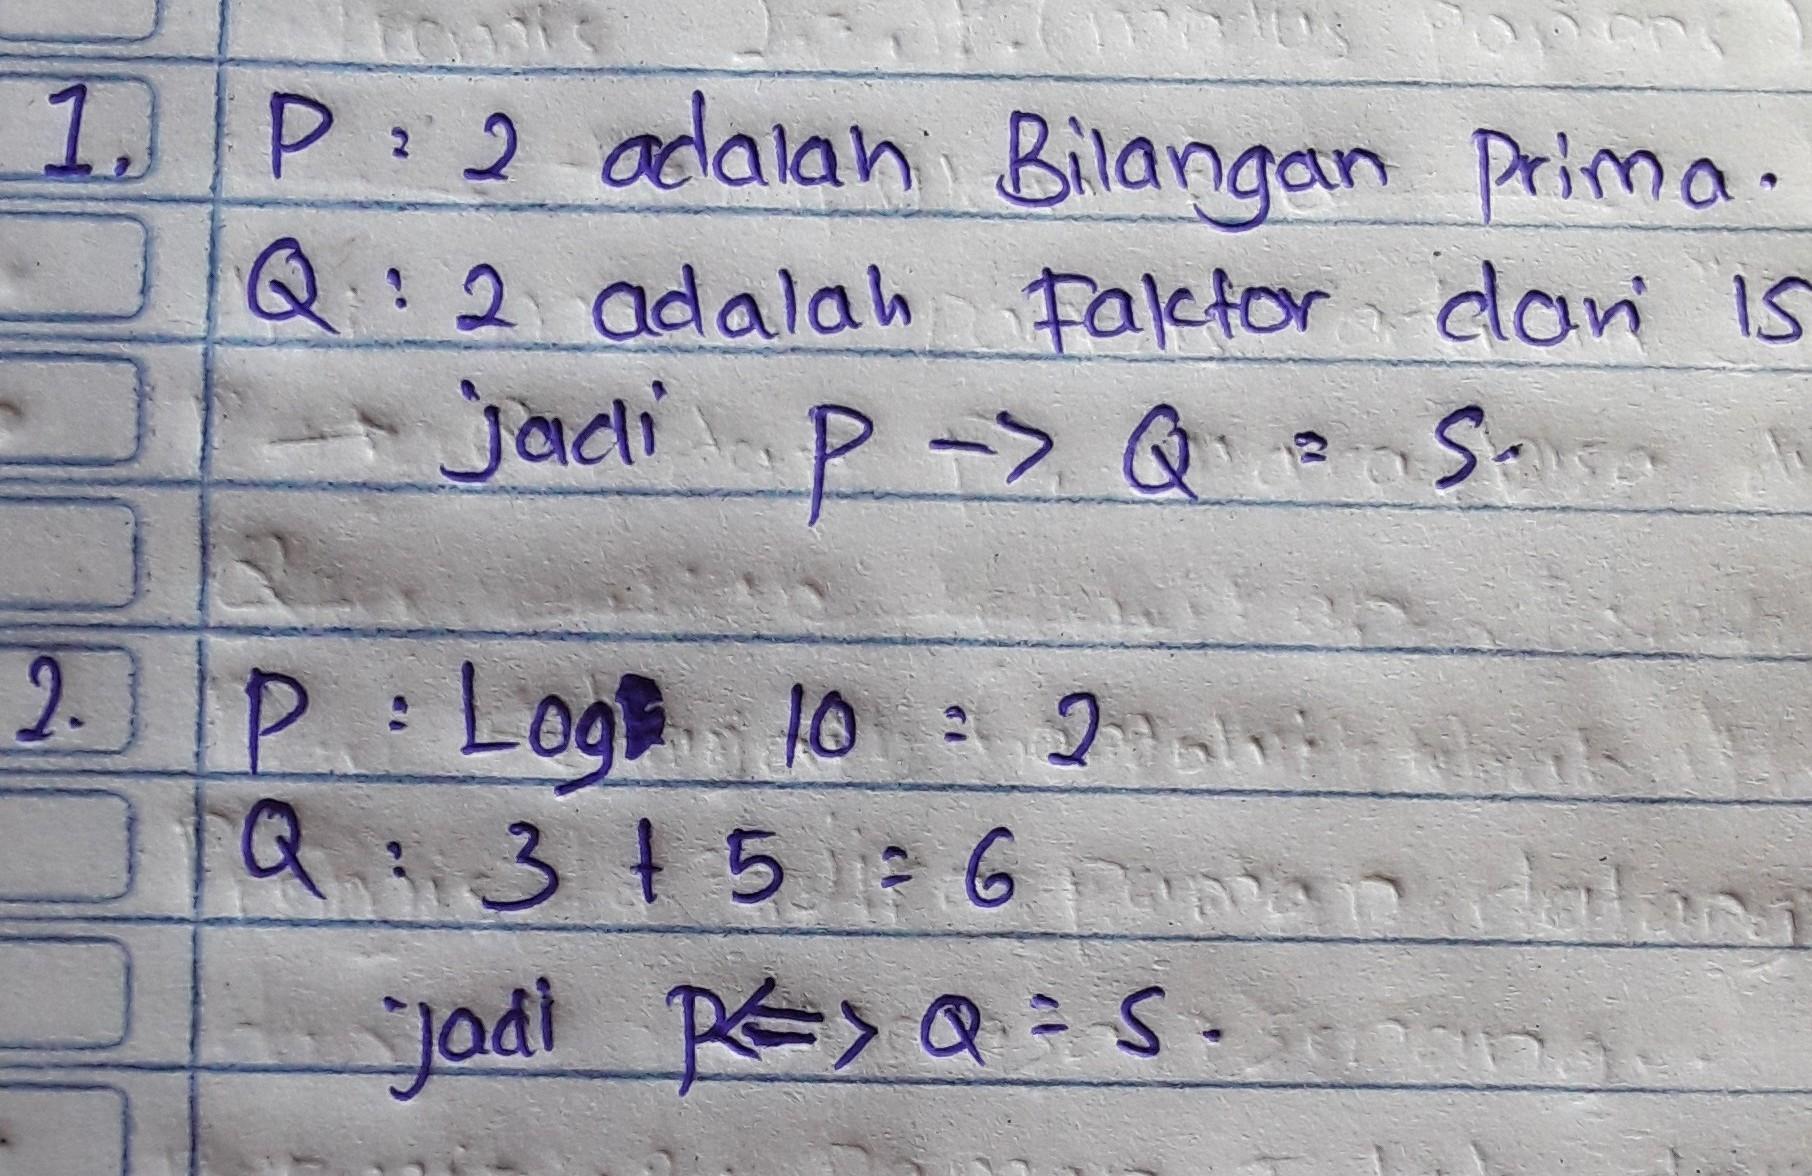 1. P : 2 adalah Bilangan Prima.
Q : 2 adalah Faktor dari 15
jadi P -> Q = S.
2. P : Log 10 = 2
Q : 3 + 5 = 6
jadi P <=> Q = S.